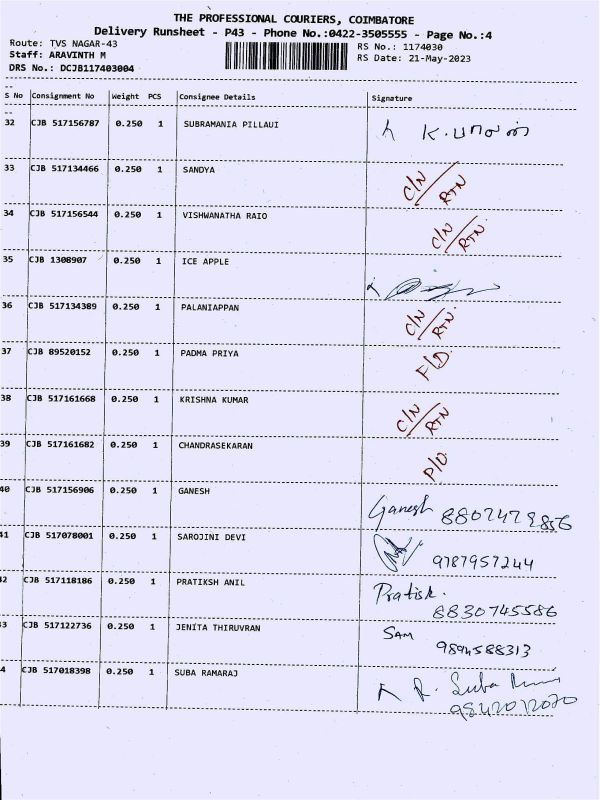 THE PROFESSIONAL COURIERS, COIMBATORE
Delivery Runsheet - P43 - Phone No.:0422-3505555 - Page No.:4
Route: TVS NAGAR-43 RS No.: 1174030
Staff: ARAVINTH M RS Date: 21-May-2023
DRS No.: DCJB117403004
S No Consignment No Weight PCS Consignee Details Signature
32 CJB 517156787 0.250 1 SUBRAMANIA PILLAUI
33 CJB 517134466 0.250 1 SANDYA C/N/RTN
34 CJB 517156544 0.250 1 VISHWANATHA RAIO C/N/RTN
35 CJB 1308907 0.250 1 ICE APPLE
36 CJB 517134389 0.250 1 PALANIAPPAN C/N/RTN
37 CJB 89520152 0.250 1 PADMA PRIYA F/D.
38 CJB 517161668 0.250 1 KRISHNA KUMAR C/N/RTN
39 CJB 517161682 0.250 1 CHANDRASEKARAN P/D
40 CJB 517156906 0.250 1 GANESH Ganesh
41 CJB 517078001 0.250 1 SAROJINI DEVI 9787957244
42 CJB 517118186 0.250 1 PRATIKSH ANIL Pratisk.
8830745586
3 CJB 517122736 0.250 1 JENITA THIRUVRAN SAM
9894588313
4 CJB 517018398 0.250 1 SUBA RAMARAJ R. Suba